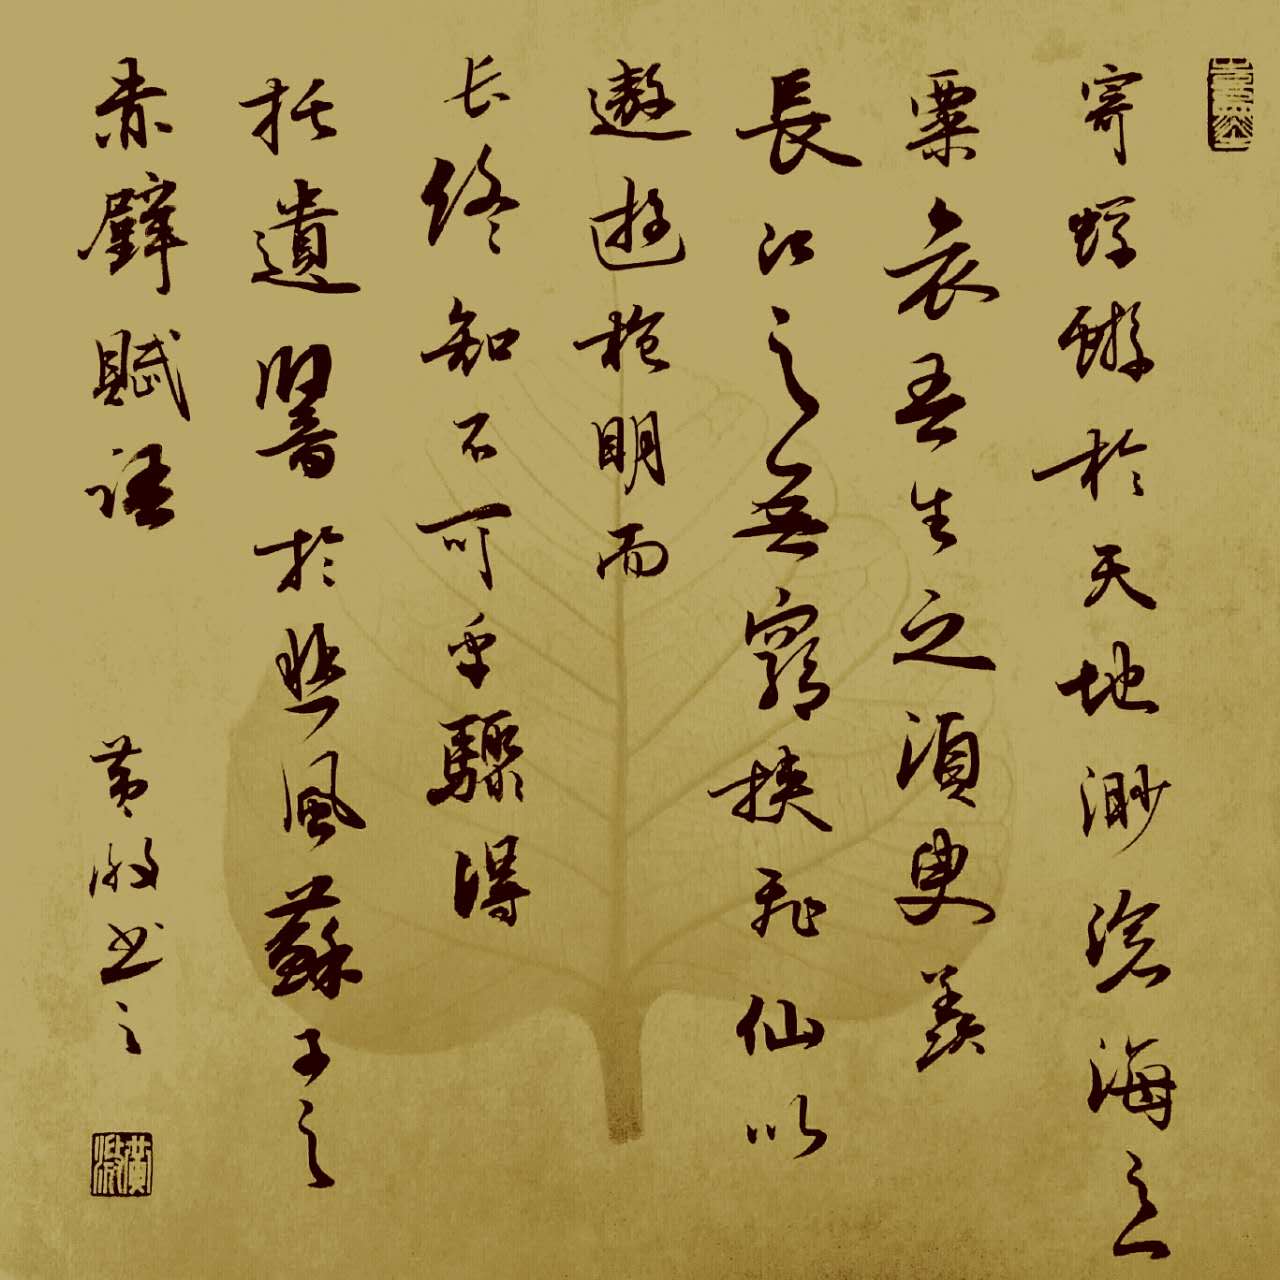 寄蜉蝣於天地渺滄海之一
粟哀吾生之須臾羨
長江之無窮挾飛仙以
遨遊抱明而
长終知不可乎驟得
托遺響於悲風蘇子之
赤壁賦語
黄书之